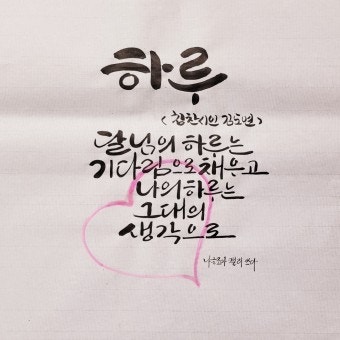 하루
달님의 하루는
기다림으로 채우고
나의 하루는
그대의
생각으로